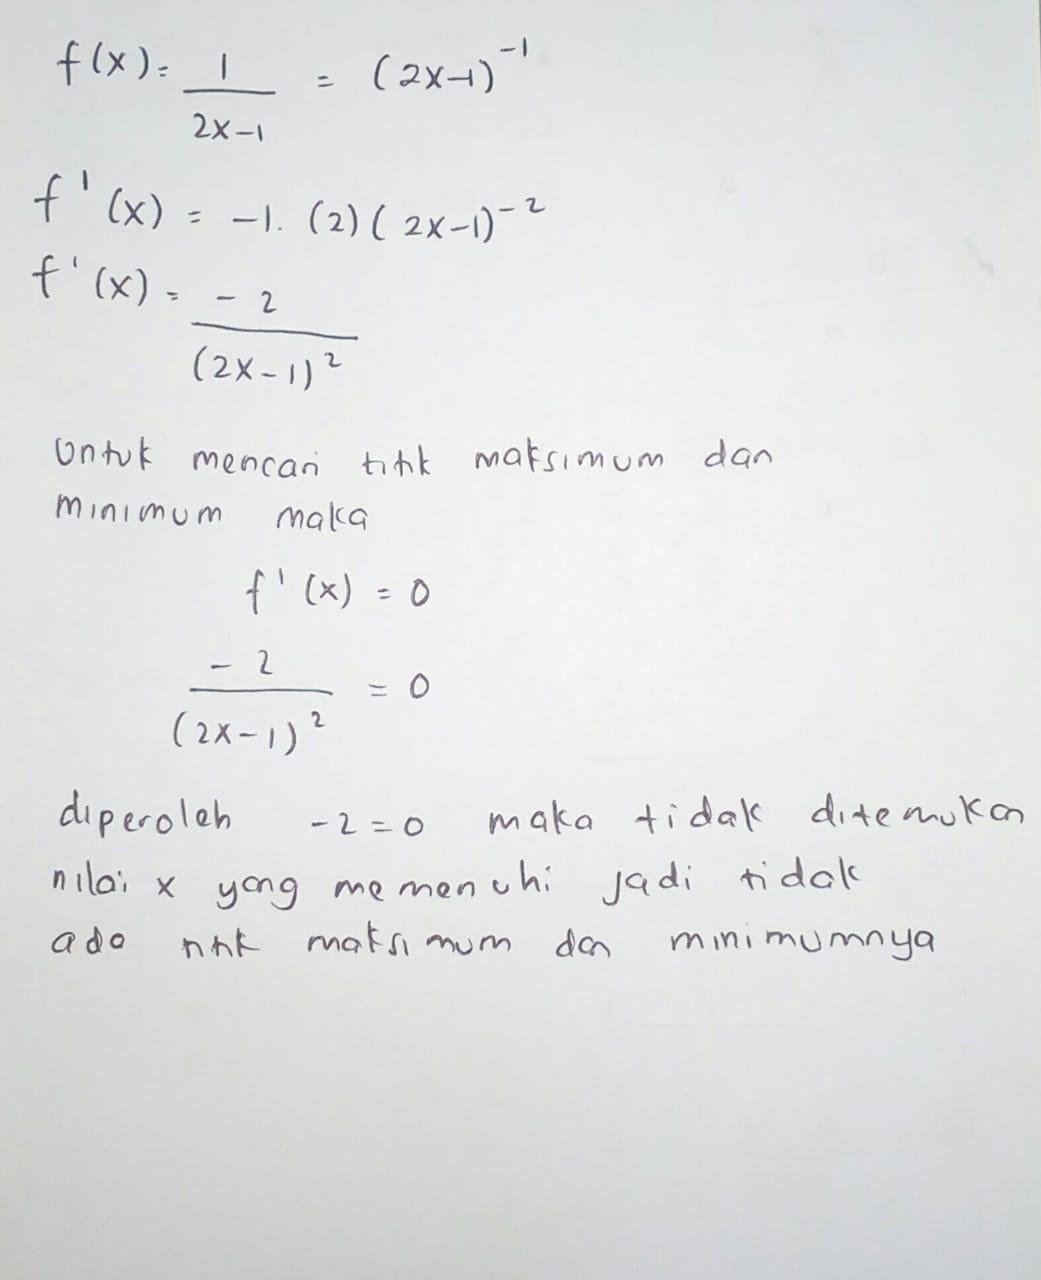 f(x) = 1/(2x-1) = (2x-1)⁻¹
f'(x) = -1. (2)(2x-1)⁻²
f'(x) = -2/(2x-1)²
Untuk mencari titik maksimum dan
minimum maka
f'(x) = 0
-2/(2x-1)² = 0
diperoleh -2=0 maka tidak ditemukan
nilai x yang memenuhi jadi tidak
ada titik maksimum dan minimumnya